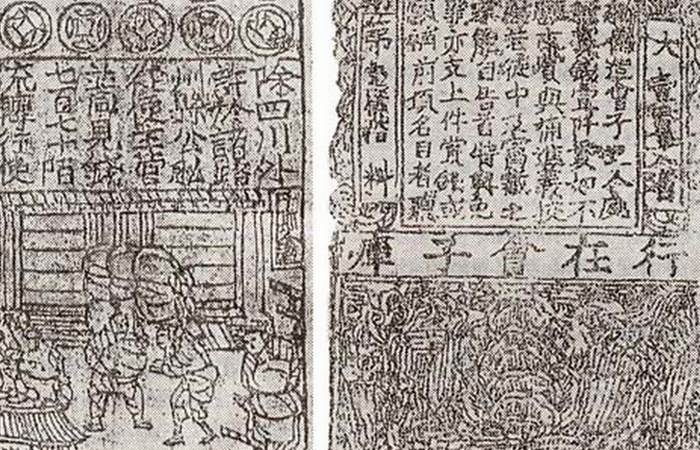 除四川外
許於諸路
州縣公私
從便主管
並同見錢
七百七十陌
流轉行使
大壹貫文省
偽造會子犯人處
賞錢壹阡貫如不
支賞與補進義校
若徒中及窩藏之
能自告首特與免
罪亦支上件賞錢或
願補前項名目者聽
料
行在會子庫